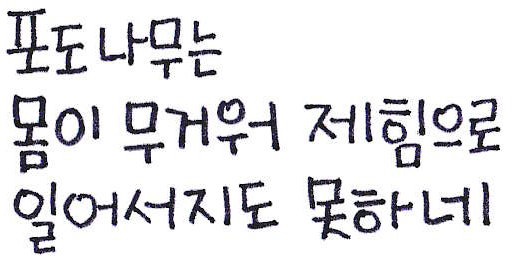 포도나무는
몸이 무거워 제힘으로
일어서지도 못하네